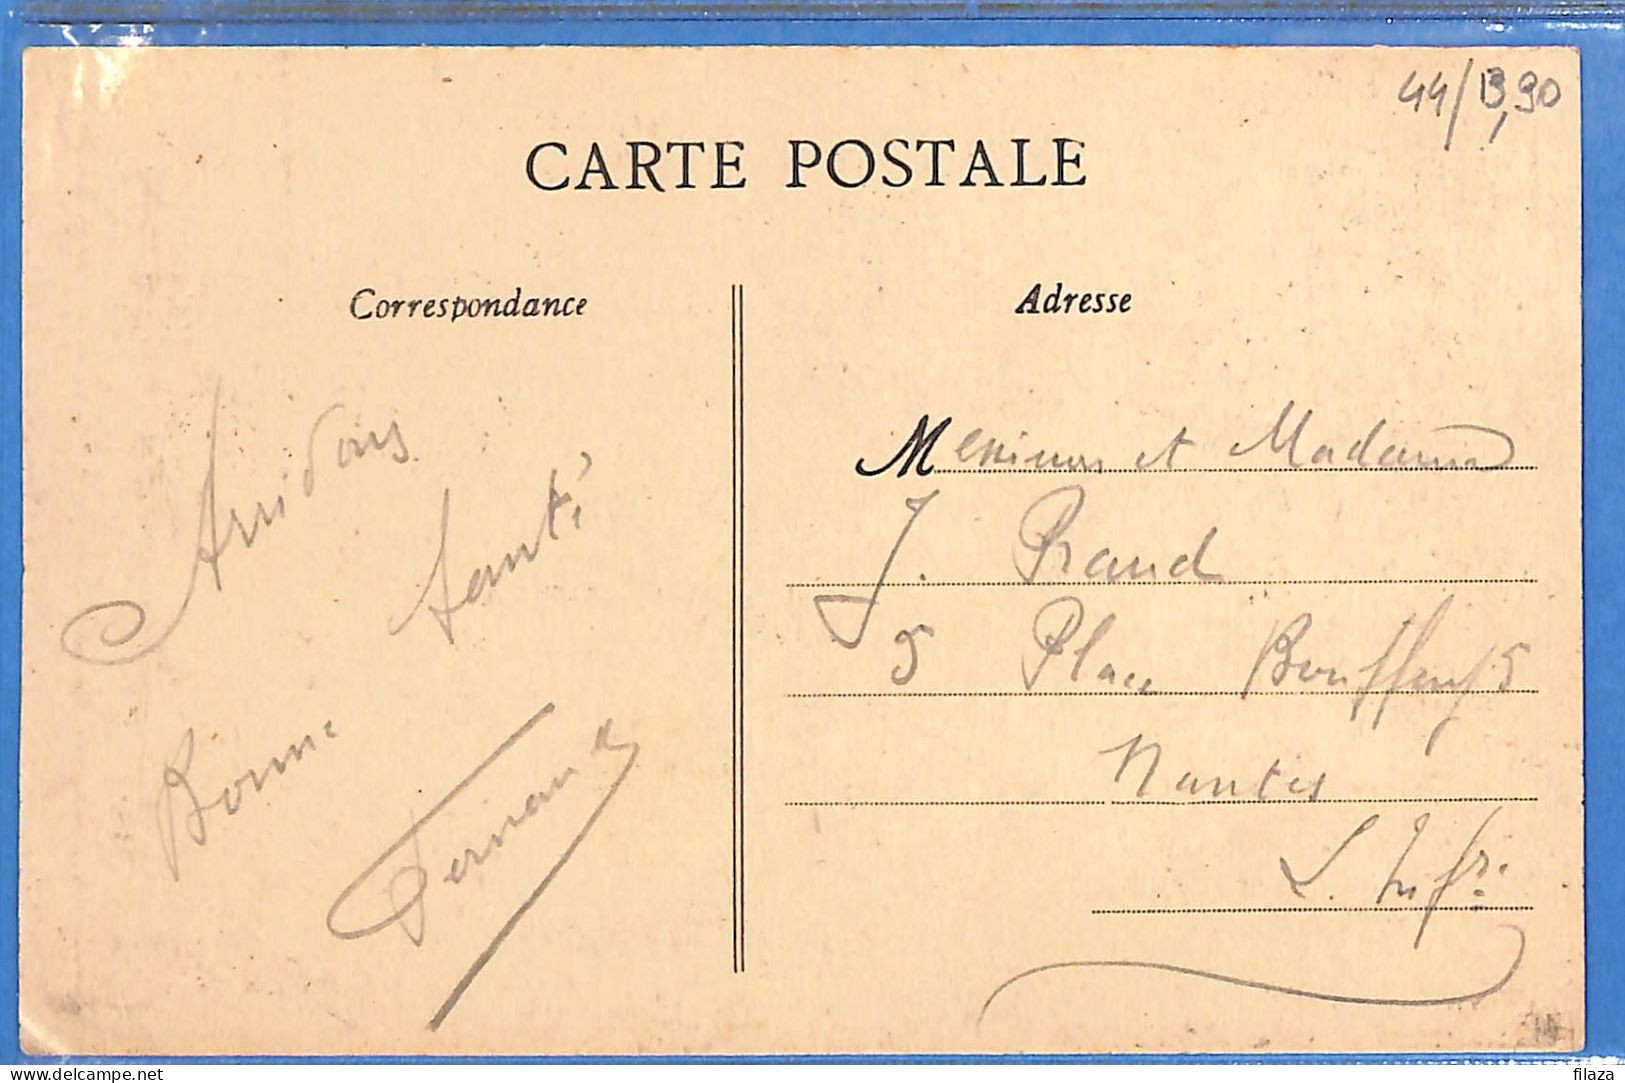 44/13,90
CARTE POSTALE
Correspondance
Adresse
santé
Bonne
Fernand
Messieurs et Madame
J. Praud
5 Place Bouffay 5
Nantes
L. Infre
www.delcampe.net
filaza